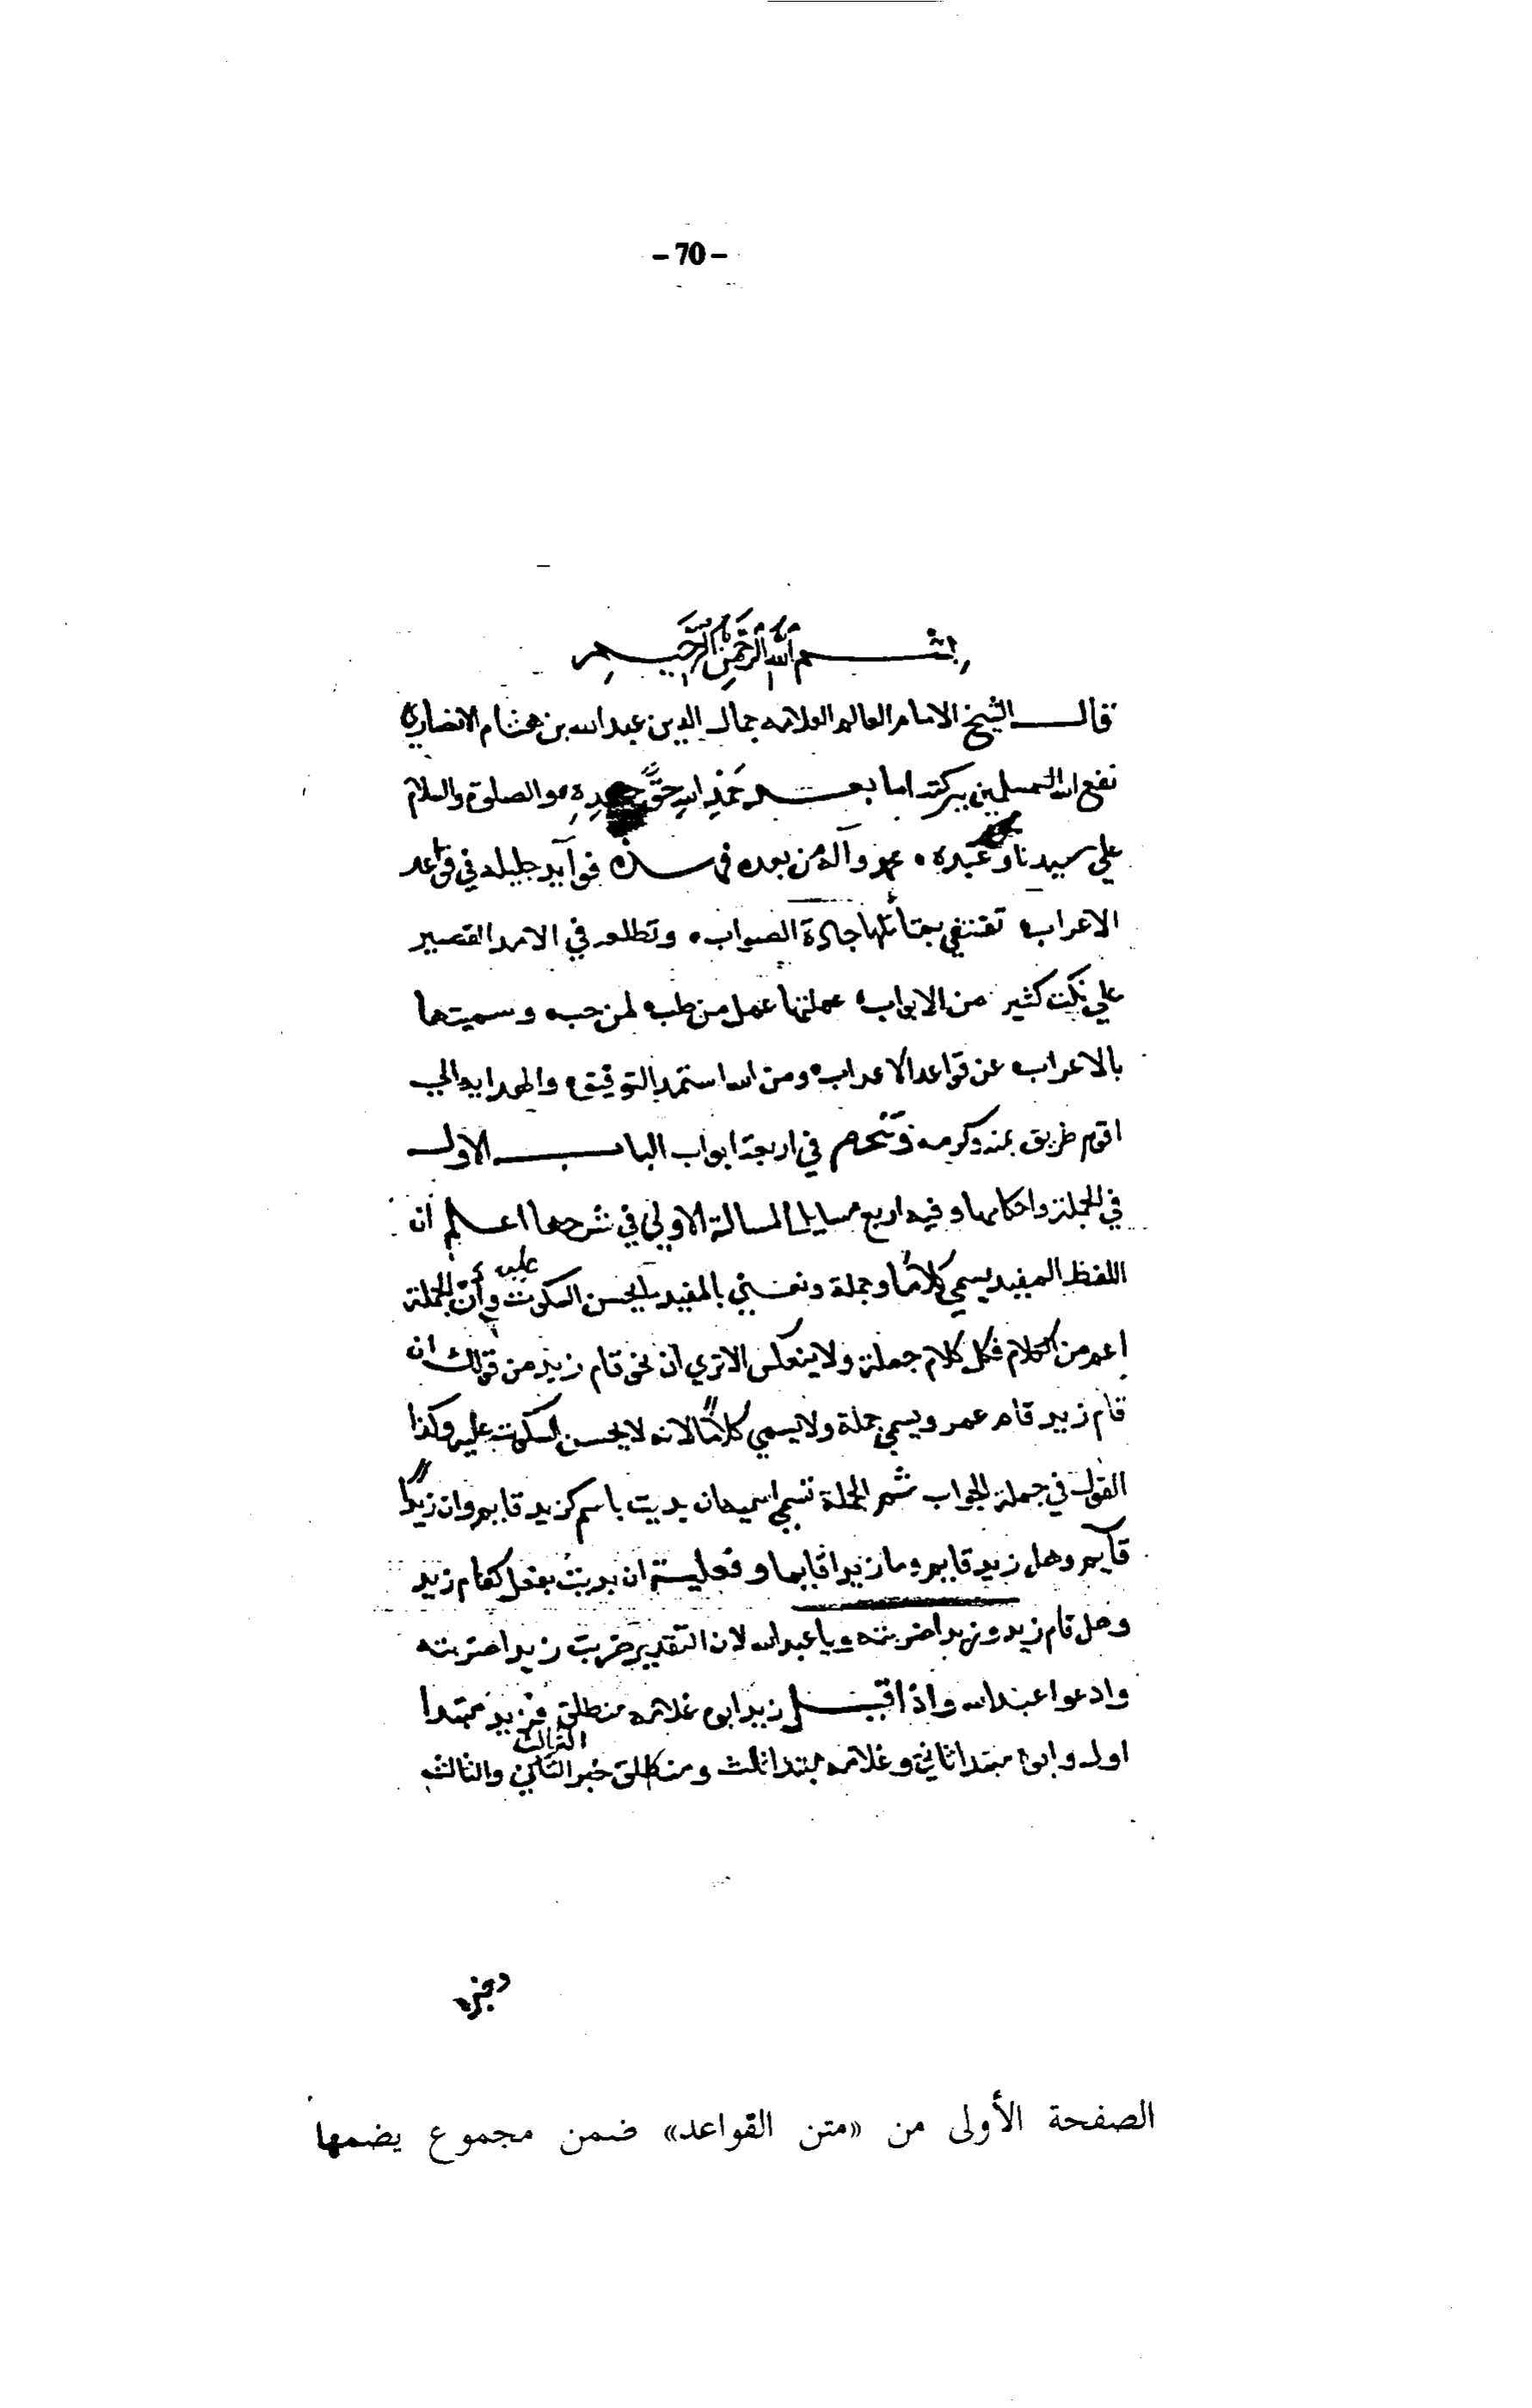 - 70 -
بسم الله الرحمن الرحيم
قال الشيخ الامام العالم العلامه جمال الدين عبد الله بن هشام الانصاري
نفع الله المسلمين ببركته اما بعد حَمْدِ اللهِ حقَّ حمدِهِ والصلوة والسلام
علي سيدنا وعبده محمد وآله من بعده فهذه فوآيد جليله في قواعد
الاعراب تقتفي بمتأملها جادة الصواب وتطلعه في الامد القصير
علي نكت كثير من الابواب عملتها عمل من طب لمن حب وسميتها
بالاعراب عن قواعد الاعراب ومن الله استمد التوفيق والهدايه الي
اقوم طريق بمنه وكرمه وتنحصر في اربعة ابواب الباب الاول
في الجملة واحكامها وفيه اربع مسايل المسالة الاولي في شرحها اعلم ان
اللفظ المفيد يسمي كلامًا وجملة ونعني بالمفيد ما يحسن السكوت عليه وأنّ الجملة
اعم من الكلام فكل كلام جملة ولا ينعكس الا تري ان نحو قام زيد من قولك ان
قام زيد قام عمرو يسمي جملة ولا يسمي كلامًا لانه لا يحسن السكوت عليه وكذا
القول في جملة الجواب ثم الجملة تسمي اسميه ان بديت باسم كزيد قايم وان زيدًا
قآيم وهل زيد قايم وما زيد اقايما وفعلية ان بديت بفعل كقام زيد
وهل قام زيد وزيدا ضربته ويا عبد الله لان التقدير ضربت زيدا ضربته
وادعوا عبد الله واذا قيل زيد ابوه غلامه منطلق فزيد مبتدا
اول وابوه مبتدا ثاني وغلامه مبتدا ثالث ومنطلق خبر الثالث والثالث
الصفحة الأولى من «متن القواعد» ضمن مجموع يضمها